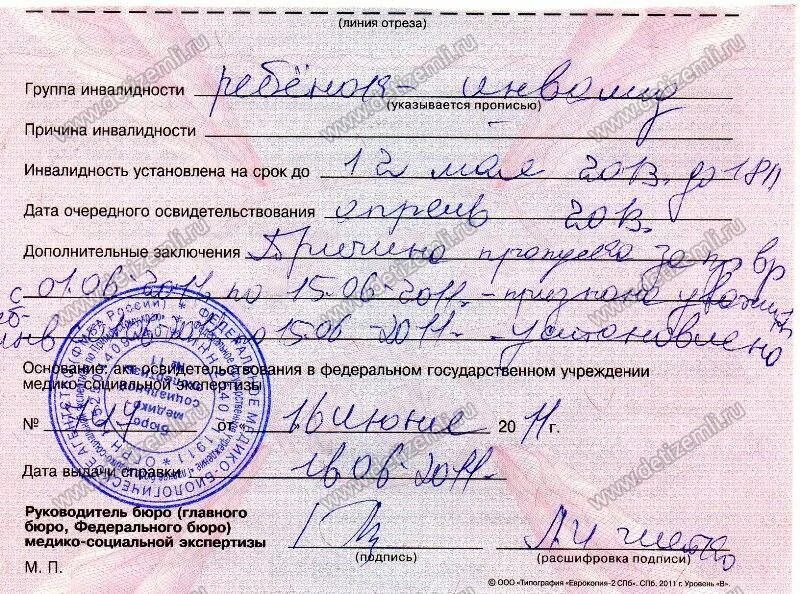 (линия отреза)
Группа инвалидности ребёнок-инвалид
(указывается прописью)
Причина инвалидности –
Инвалидность установлена на срок до 12 мая 2013. до 18л
Дата очередного освидетельствования апрель 2013.
Дополнительные заключения Причина пропуска за пр вр
с 01.06.2011 по 15.06.2011 - признана уважит
по 15.06-2011. - установлено
Основание: акт освидетельствования в федеральном государственном учреждении
медико-социальной экспертизы
№ от 16 июня 2011 г.
Дата выдачи справки 16.06.2011.
Руководитель бюро (главного
бюро, Федерального бюро)
медико-социальной экспертизы
(подпись)
(расшифровка подписи)
М. П.
© ООО «Типография «Еврокопия-2 СПб». СПб. 2011 г. Уровень «В».
www.detizemli.ru